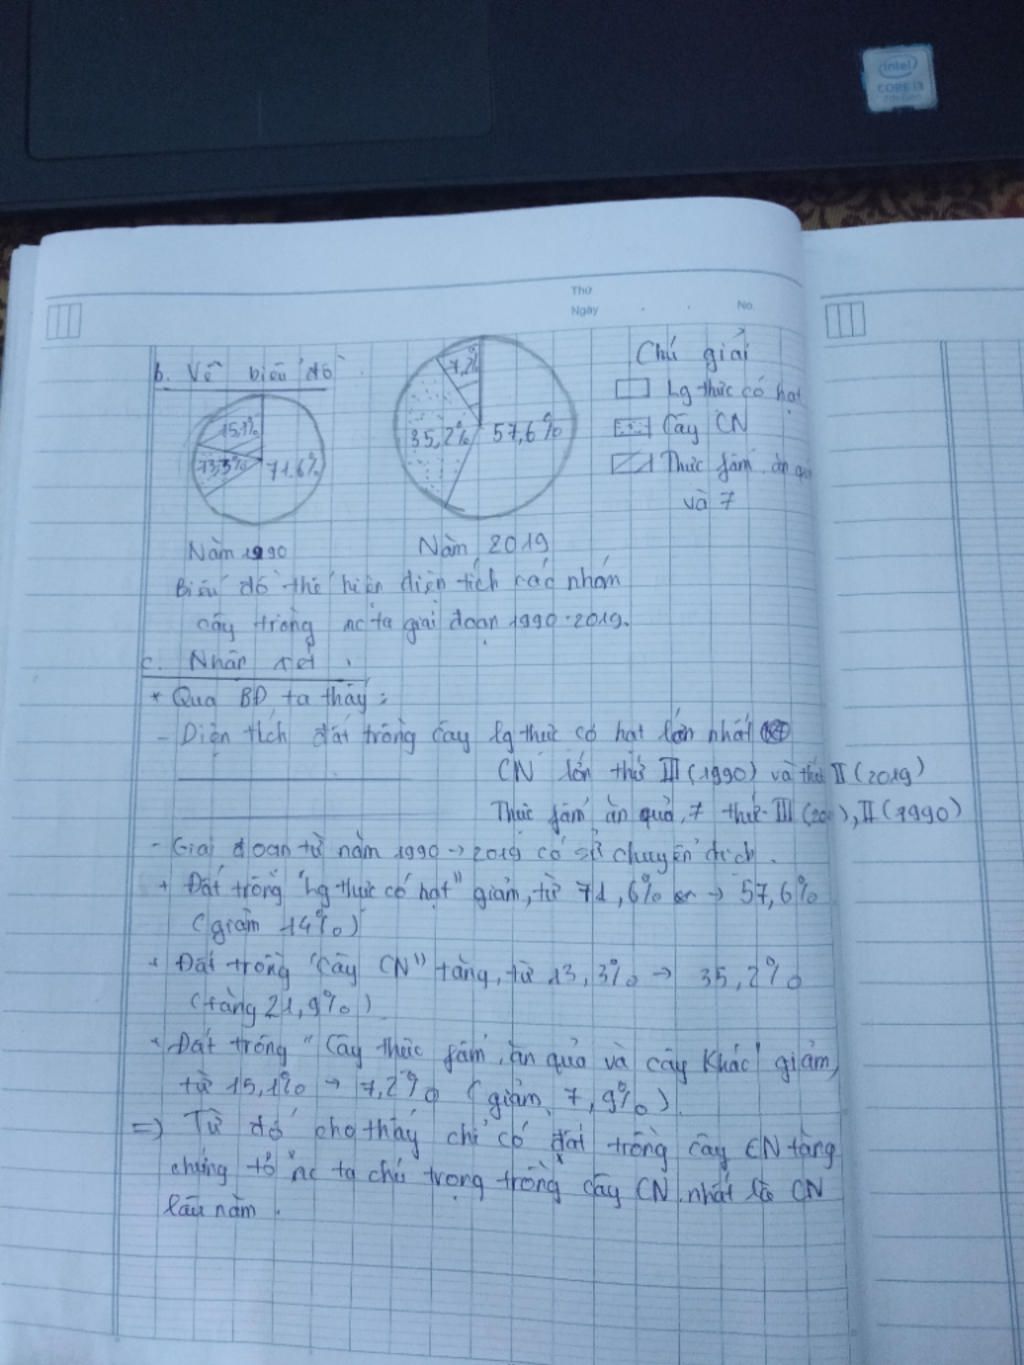 intel
CORE i3
Thứ
Ngày . . No.
b. Vẽ biểu đồ
15,1%
13,3% 71,6%
7,2%
35,2% 57,6%
Chú giải
Lg thực có hạt
Cây CN
Thực fẩm, ăn quả
và 7
Năm 1990 Năm 2019
Biểu đồ thể hiện diện tích các nhóm
cây trồng nc ta giai đoạn 1990-2019.
c. Nhận xét.
* Qua BĐ, ta thấy:
- Diện tích đất trồng cây lg thực có hạt lớn nhất
CN lớn thứ III (1990) và thứ II (2019)
Thực fẩm ăn quả, 7 thứ III ), II (1990)
- Giai đoạn từ năm 1990 → 2019 có sự chuyển dịch.
+ Đất trồng "lg thực có hạt" giảm, từ 71,6% → 57,6%
(giảm 14%)
+ Đất trồng "Cây CN" tăng, từ 13,3% → 35,2%
(tăng 21,9%)
+ Đất trồng "Cây thực fẩm, ăn quả và cây khác" giảm,
từ 15,1% → 7,2% (giảm 7,9%).
=> Từ đó cho thấy chỉ có đất trồng cây CN tăng
chứng tỏ nc ta chú trọng trồng cây CN nhất là CN
lâu năm.